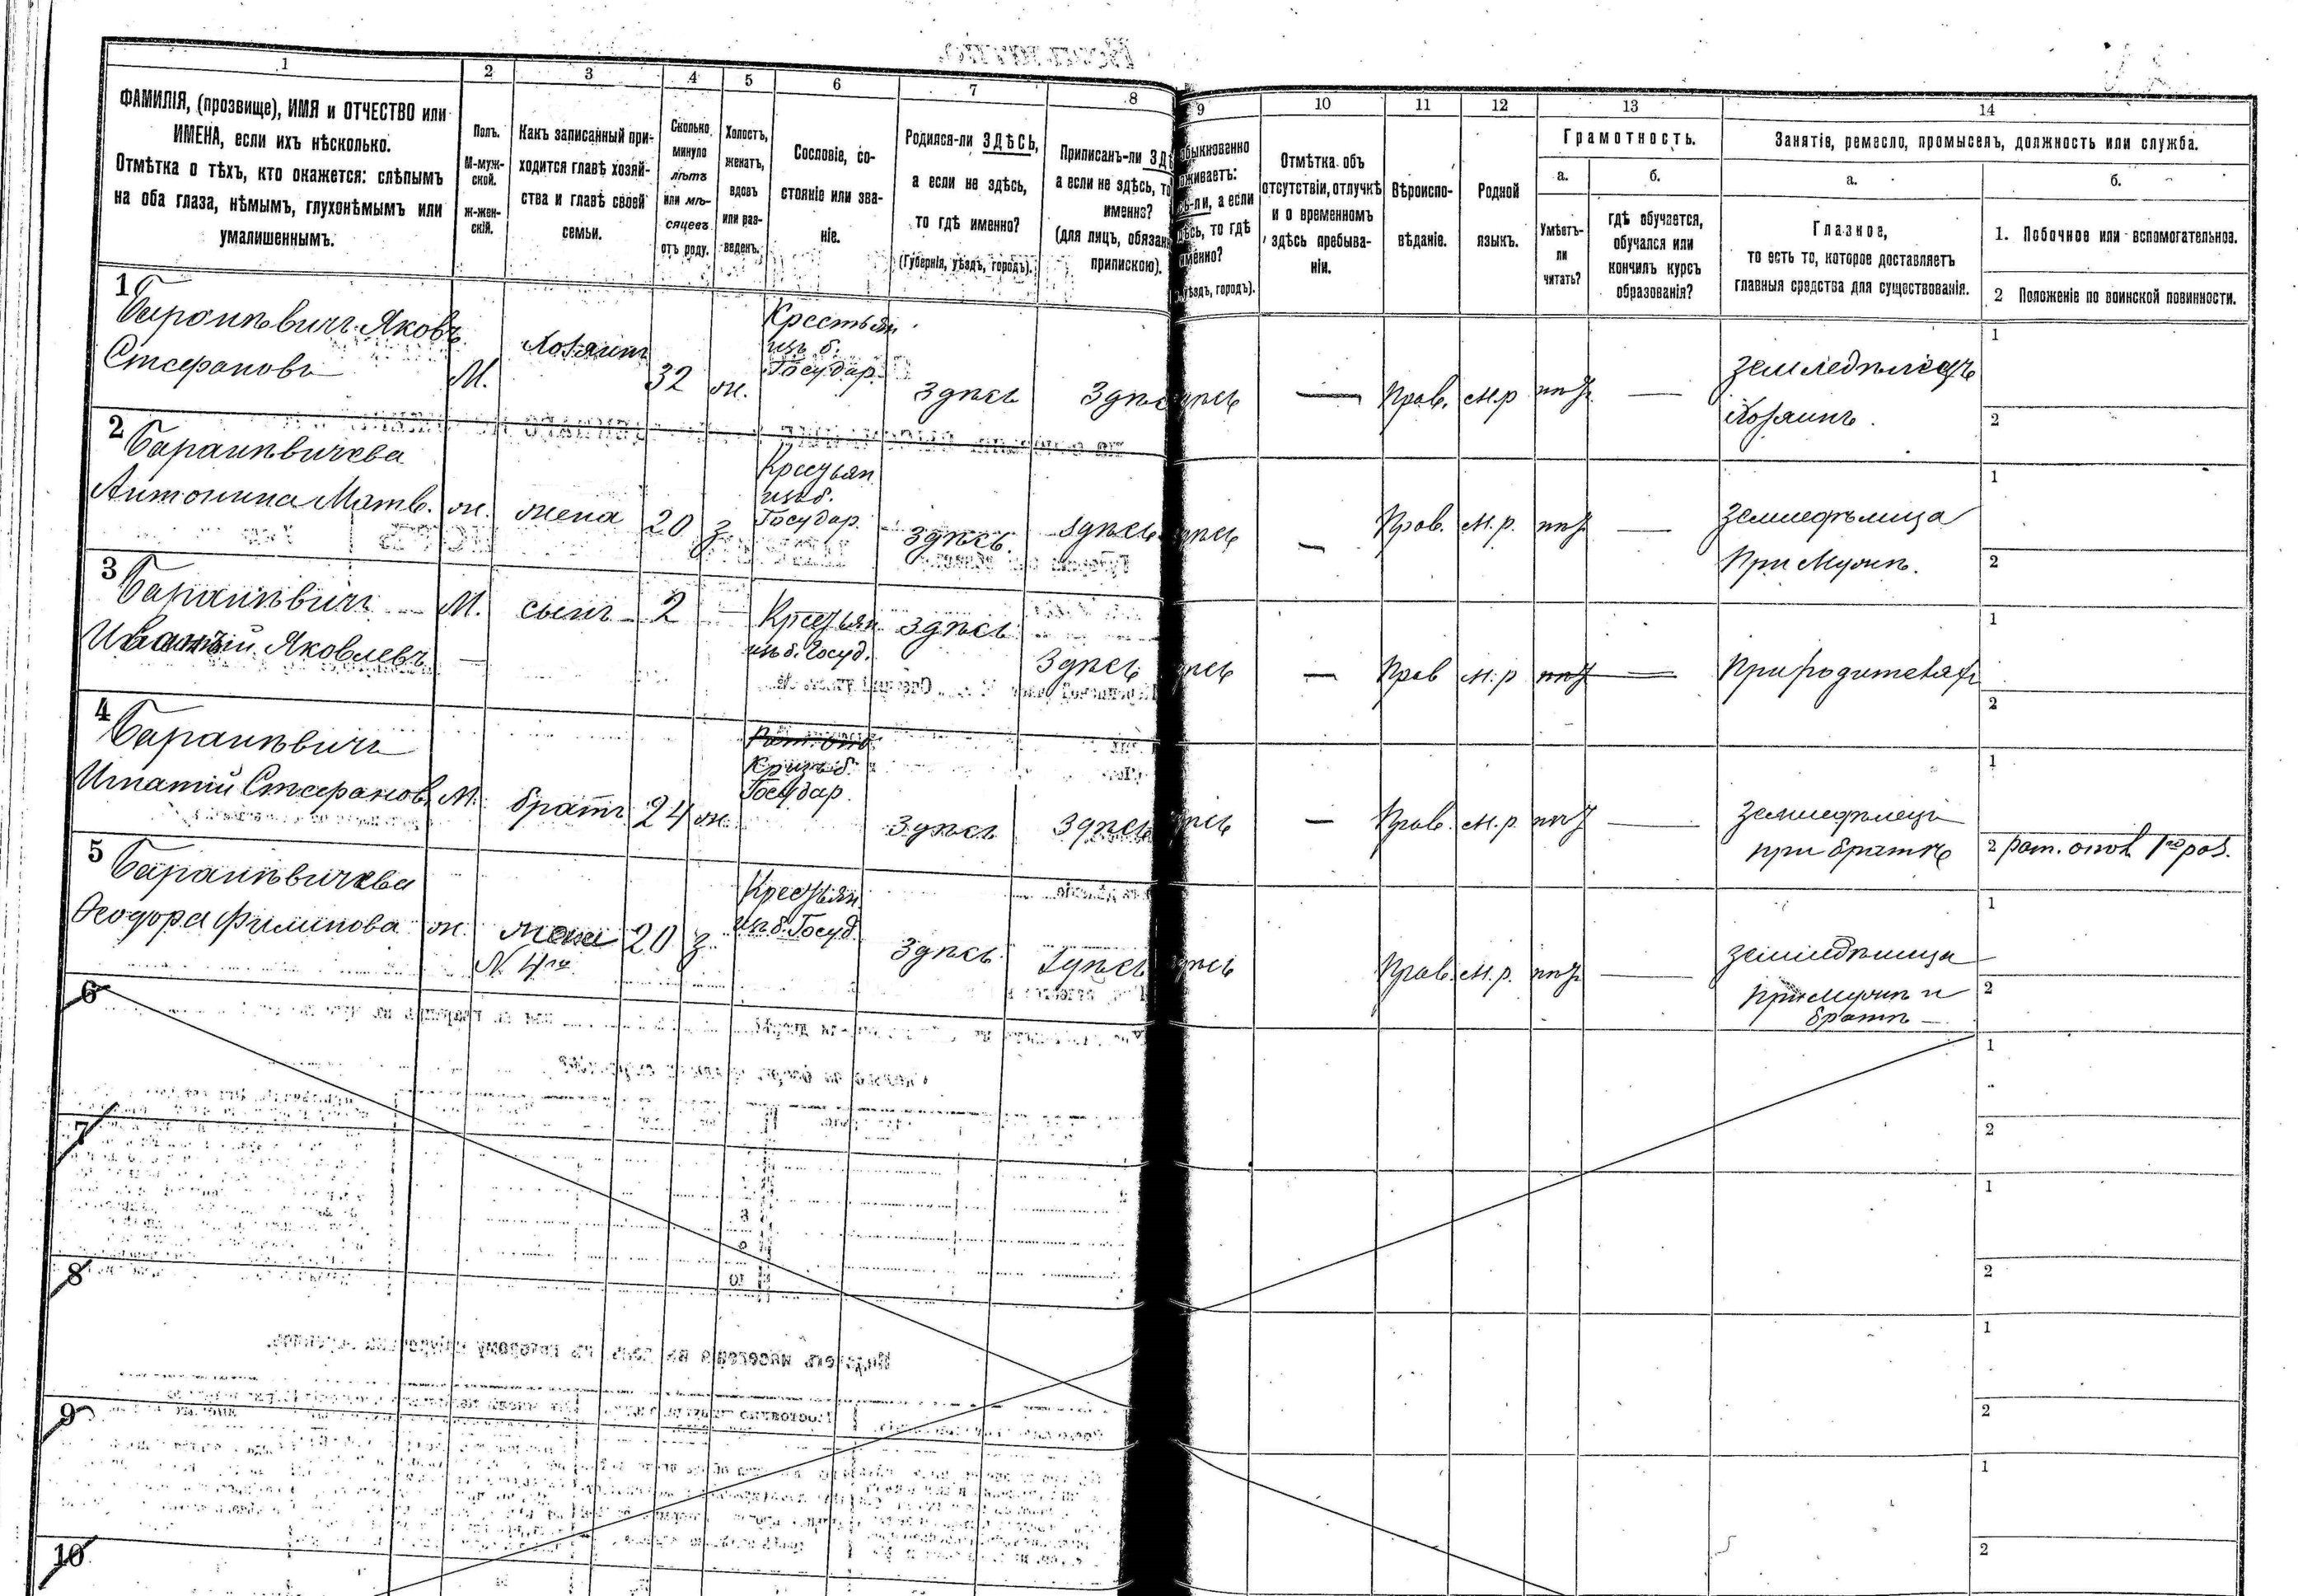 1 2 3 4 5 6 7 8 9 10 11 12 13 14
ФАМИЛІЯ, (прозвище), ИМЯ и ОТЧЕСТВО или
ИМЕНА, если ихъ нѣсколько.
Отмѣтка о тѣхъ, кто окажется: слѣпымъ
на оба глаза, нѣмымъ, глухонѣмымъ или
умалишеннымъ.
Полъ.
М-муж-
ской.
Ж-жен-
скій.
Какъ записанный при-
ходится главѣ хозяй-
ства и главѣ своей
семьи.
Сколько
минуло
лѣтъ
или мѣ-
сяцевъ
отъ роду.
Холостъ,
женатъ,
вдовъ
или раз-
веденъ.
Сословіе, со-
стояніе или зва-
ніе.
Родился-ли ЗДѢСЬ,
а если не здѣсь,
то гдѣ именно?
(Губернія, уѣздъ, городъ).
Приписанъ-ли ЗДѢ
а если не здѣсь, то
именно?
(для лицъ, обязан
припискою).
быкновенно
живаетъ:
ѣ-ли, а если
ѣсь, то гдѣ
именно?
уѣздъ, городъ).
Отмѣтка объ
отсутствіи, отлучкѣ
и о временномъ
здѣсь пребыва-
ніи.
Вѣроиспо-
вѣданіе.
Родной
языкъ.
Грамотность.
а.
Умѣетъ-
ли
читать?
б.
гдѣ обучается,
обучался или
кончилъ курсъ
образованія?
Занятіе, ремесло, промыселъ, должность или служба.
а.
Главное,
то есть то, которое доставляетъ
главныя средства для существованія.
б.
1. Побочное или вспомогательное.
2 Положеніе по воинской повинности.
1
Баранкѣвичъ Яковъ
Стефановъ
М.
Хозяинъ
32
ж.
Крестьян
изъ б.
Государ.
Здѣсь
Здѣс
ѣсь
—
Прав.
м.р
—
Земледѣлецъ
Хозяинъ.
1
2
2
Баранкѣвичева
Антонина Матв.
ж.
жена
20
з
Крестьян
изъ б.
Государ.
Здѣсь.
Здѣсь
ѣсь
—
Прав.
м.р.
—
Земледѣлица
При Мужѣ.
1
2
3
Баранкѣвичъ
Яковлевъ
М.
сынъ
2
—
Крестьян
изъ б. Госуд.
Здѣсь
Здѣсь
ѣсь
—
Прав
м.р
—
При родителях
1
2
4
Баранкѣвичъ
Игнатій Стефанов
М.
братъ
24
ж.
Кр. изъ б.
Государ.
Здѣсь
Здѣсь
ѣсь
—
Прав.
м.р.
—
Земледѣлецъ
при братѣ
1
2 рат. опол 1го раз.
5
Баранкѣвичева
Ѳеодора Филипова
ж.
жена
N. 4го
20
з
Крестьян
из б. Госуд.
Здѣсь
Здѣсь
ѣсь
Прав.
м.р.
—
Земледѣлица
При Мужѣ и
братѣ —
1
2
6
1
2
7
1
2
8
1
2
9
1
2
10